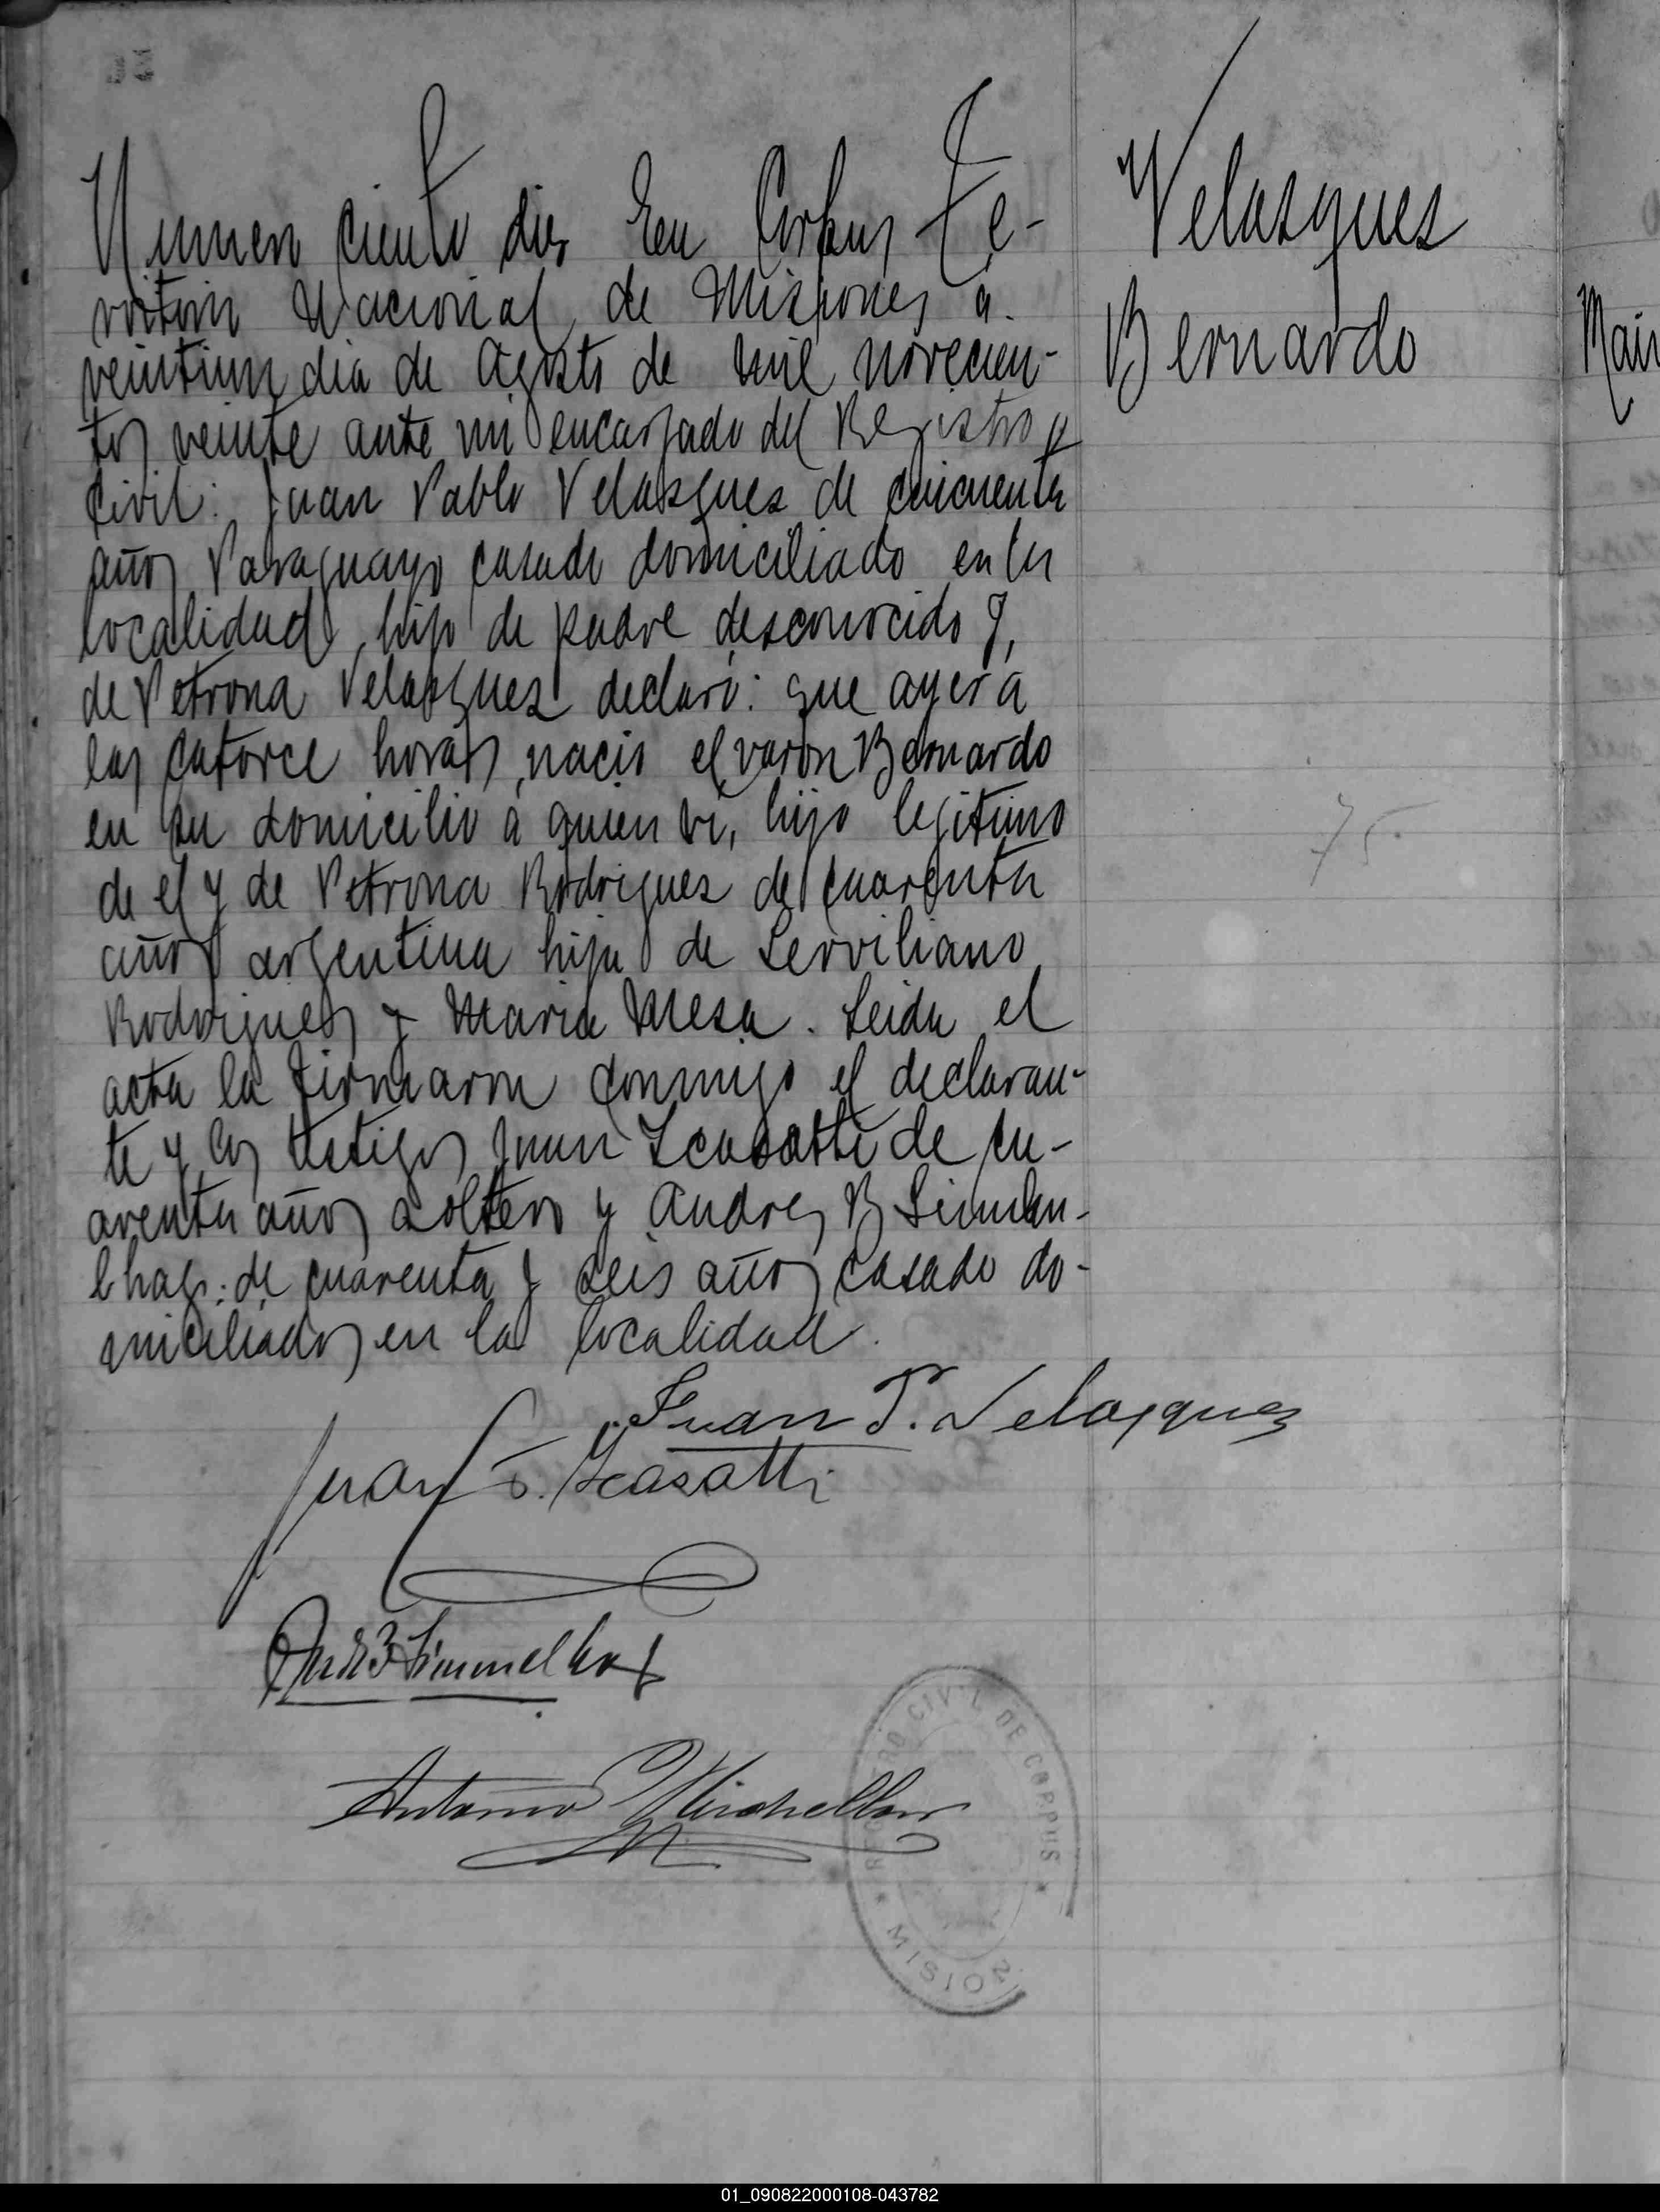 Numero ciento diez En Corpus Te-
rritorio Nacional de Misiones a
veintiun dia de Agosto de mil novecien-
tos veinte ante mi encargado del Registro
Civil: Juan Pablo Velasques de cincuenta
años Paraguayo casado domiciliado en la
localidad, hijo de padre desconocido y,
de Petrona Velasquez declaró: que ayer a
las catorce horas nacio el varon Bernardo
en su domicilio a quien vi, hijo legitimo
de el y de Petrona Rodriguez de cuarenta
años argentina hija de Serviliano
Rodrigues y Maria Mesa. Leida el
acta la firmaron conmigo el declaran-
te y los testigos Juan Scasatti de cu-
arenta años soltero y Andres B Simmel-
hag: de cuarenta y seis años casado do-
miciliados en la localidad.
Juan P. Velasquez
Juan F. Scasatti
And B Simmelhag
Antonio
REGISTRO CIVIL DE CORPUS
MISION
Velasques
Bernardo
75.
Mair
01_090822000108-043782